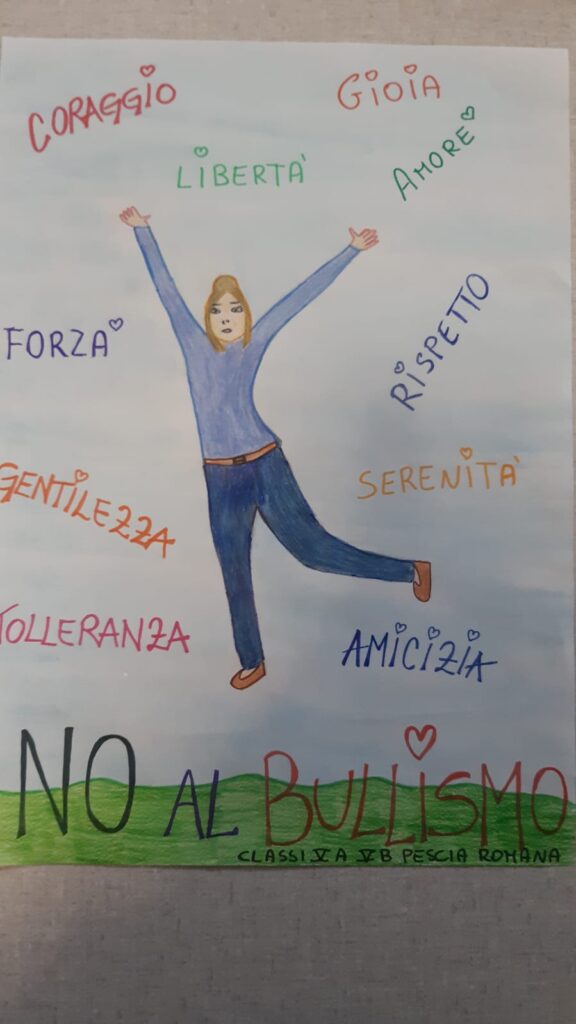 CORAGGIO
GIOIA
LIBERTA'
AMORE
FORZA
RISPETTO
GENTILEZZA
SERENITA'
TOLLERANZA
AMICIZIA
NO AL BULLISMO
CLASSI V A V B PESCIA ROMANA